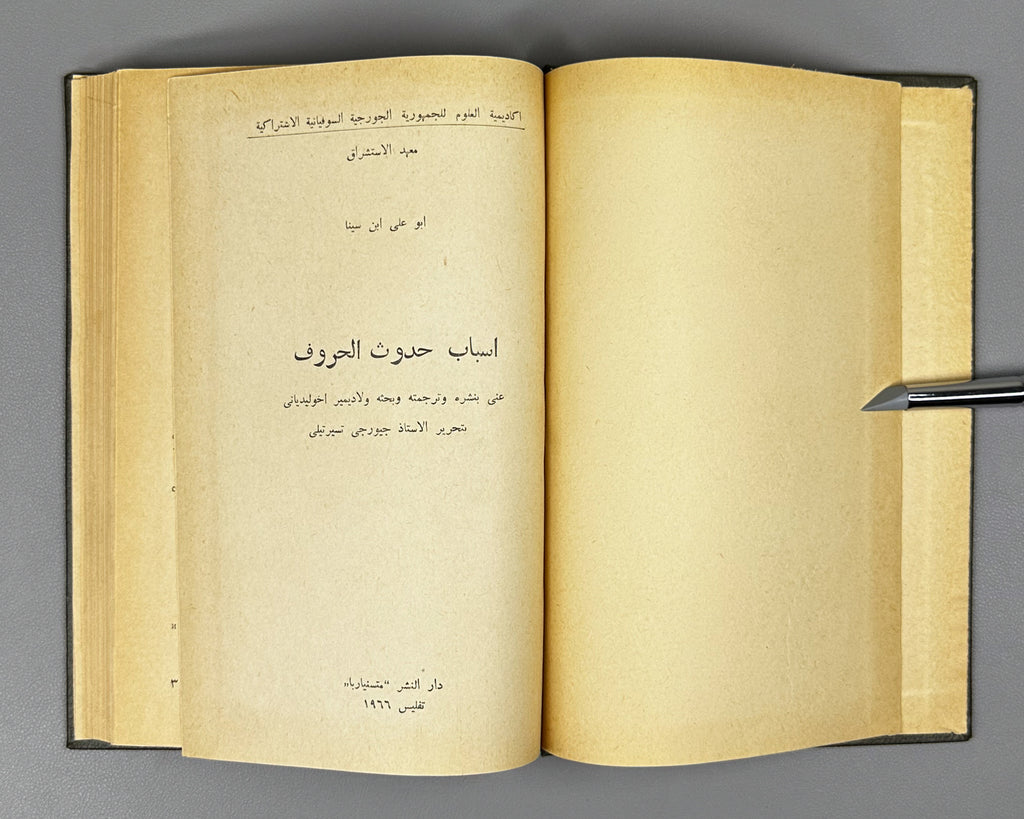 اكاديمية العلوم للجمهورية الجورجية السوفياتية الاشتراكية
معهد الاستشراق
ابو على ابن سينا
اسباب حدوث الحروف
عنى بنشره وترجمته وبحثه ولاديمير اخوليديانى
بتحرير الاستاذ جيورجى تسيرتيلى
دار النشر “متسنياربا„
تفليس ١٩٦٦
с
и
٣